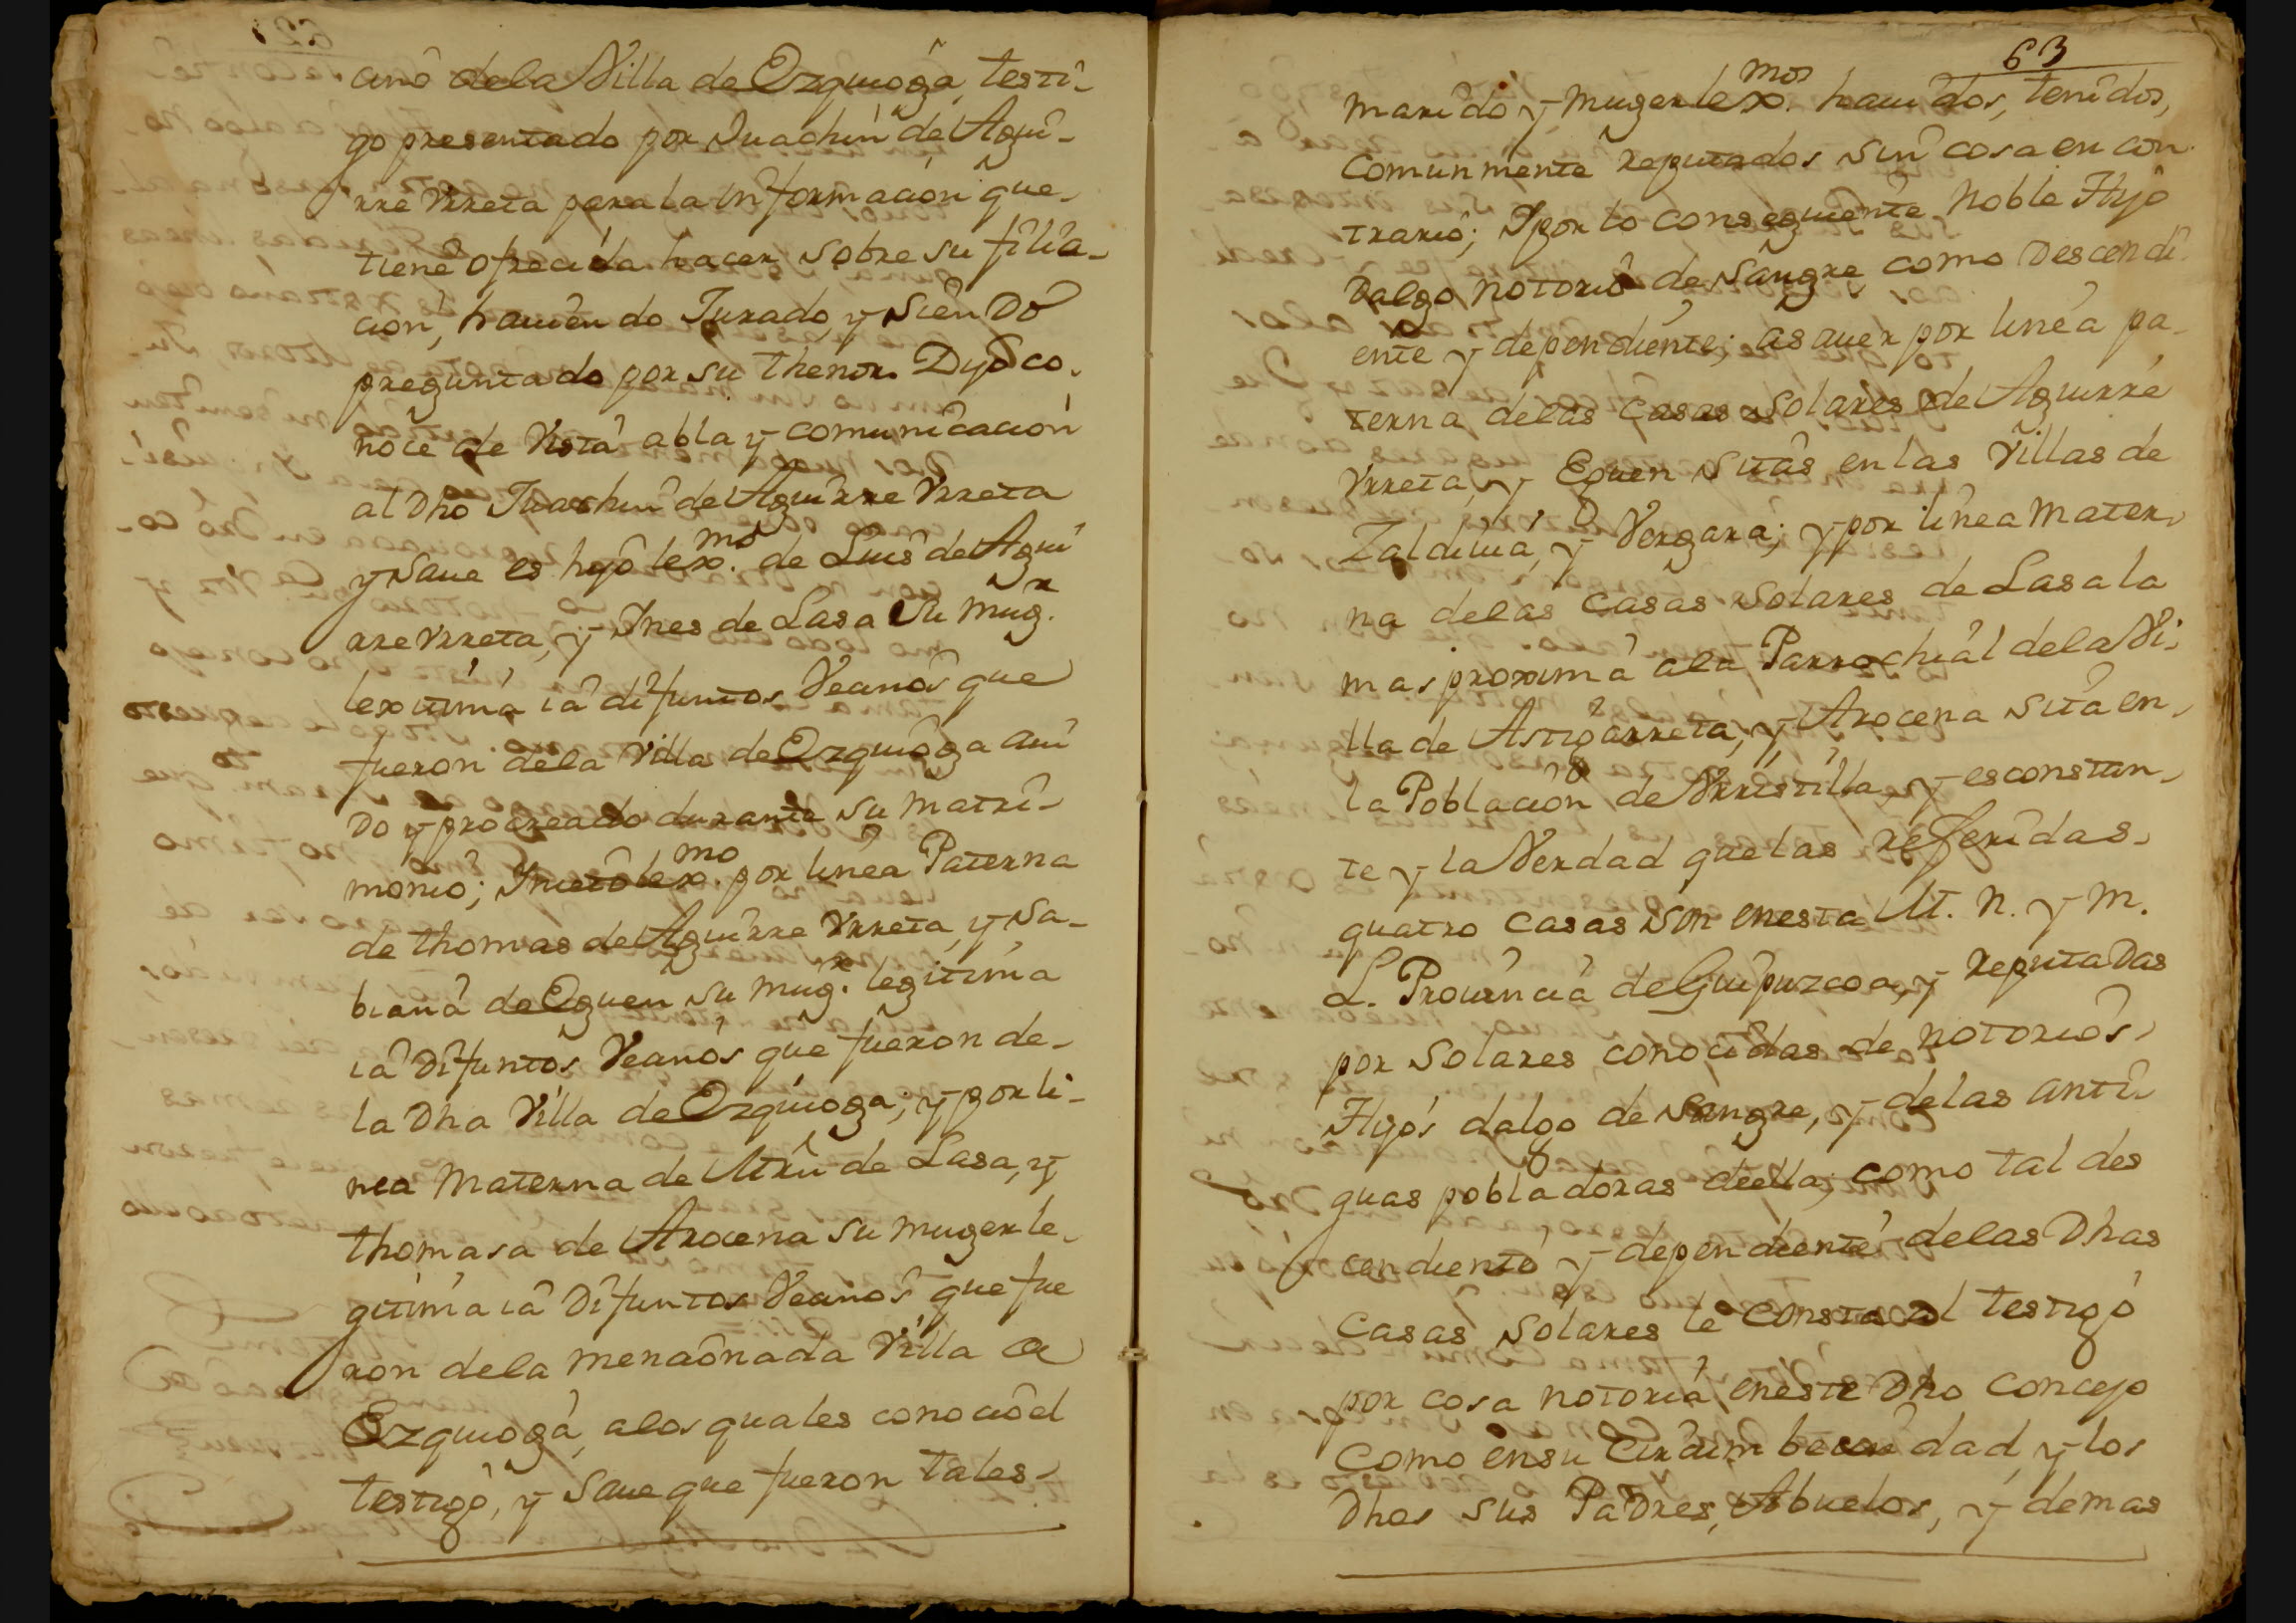 cinô dela Villa de Ozquioga, testi-
go presentado por Juachin de Agui-
rre Vrreta para la informacion que
tiene ofrecida hacer sobre su filia-
cion, hauiendo Jurado, y Siendo
preguntado por su thenor. Dijo co-
noce de Vista abla y comunicacion
al Dho Juachin de Aguirre Vrreta
y Saue es hijo lexmo. de Luis de Agui
rre Vrreta, y Ines de Lasa Su mugr.
lexitima ia difuntos Vecinos que
fueron dela Villa de Ozquioga aui
do y procreado durante su matri-
monio; Ynieto lexmo. por linea Paterna
de thomas de Aguirre Vrreta, y Sa-
biana de Eguen su mugr. legitima
ia Difuntos Vecinos que fueron de-
la Dha Villa de Ozquioga; y por li-
nea Materna de Mrn de Lasa, y
thomasa de Arocena su muger le-
gitima ia Difuntos Vecinos que fue
ron dela mencionada Villa de
Ezquioga, alos quales conocio el
testigo, y Saue que fueron tales
63
marido y muger lexmos. hauidos, tenidos,
Comunmente reputados sin cosa en con-
trario; Y por lo conseguiente Noble Hijo
Dalgo notorio de Sangre, como Descendi-
ente y dependiente; asauer por linea pa-
terna delas Casas Solares de Aguirre
Vrreta, y Eguen sitas en las Villas de
Zaldiuia, y Vergara; y por linea mater-
na delas Casas Solares de Lasa la
mas proxima ala Parrochial dela Vi-
lla de Astigarreta, y Arocena sita en
la Poblacion de Vrrestilla, y es constan-
te y la Verdad que las refferidas
quatro Casas son enesta M. N. y M.
L. Prouincia de Guipuzcoa, y reputadas
por Solares conocidas de notorios
Hijos dalgo de Sangre, y delas anti-
guas pobladoras deella; como tal des
cendiente y dependiente delas Dhas
Casas Solares le consta al testigo
por cosa notoria eneste Dho Concejo
como ensu Circumbecindad, y los
Dhos sus Padres, Abuelos, y demas